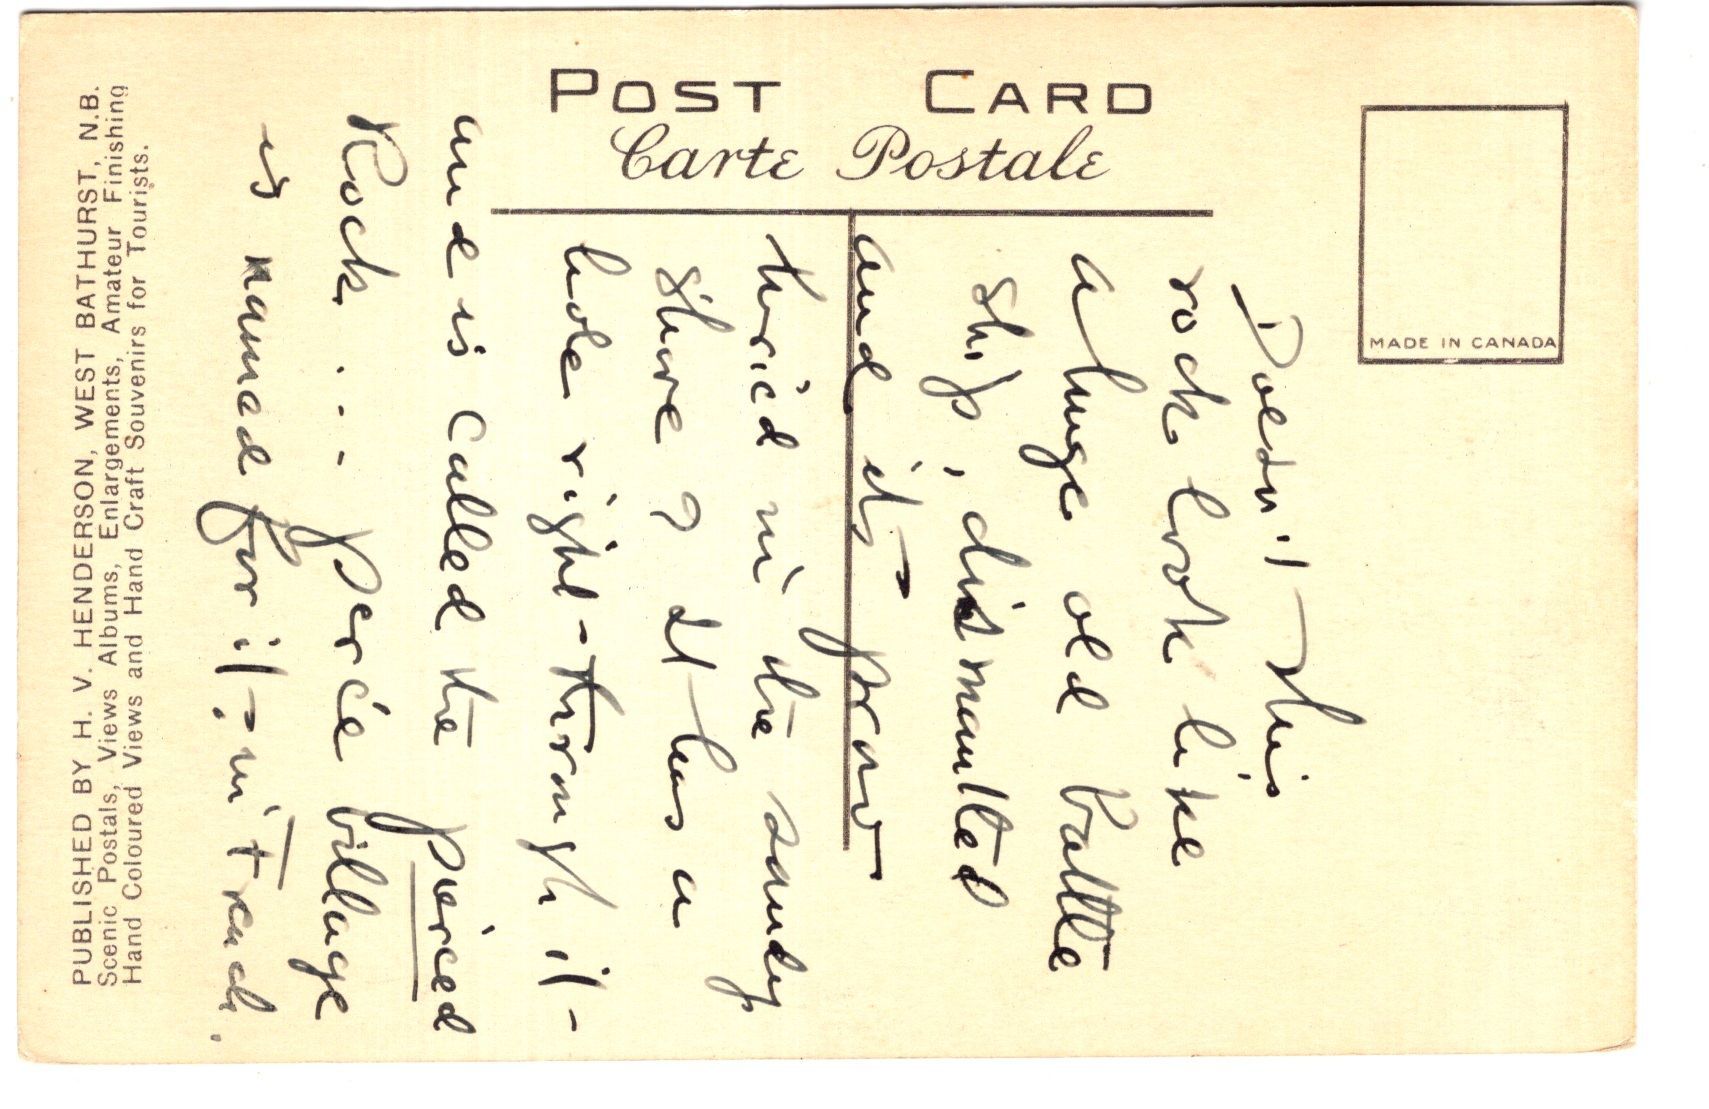 POST CARD
Carte Postale
MADE IN CANADA
Doesn't this
rock look like
a huge old battle
ship, dismantled
and its prow
buried in the sandy
shore? It has a
hole right through it
and is called the pierced
Rock ... Percé village
is named for it, in French.
PUBLISHED BY H. V. HENDERSON, WEST BATHURST, N.B.
Scenic Postals, Views Albums, Enlargements, Amateur Finishing
Hand Coloured Views and Hand Craft Souvenirs for Tourists.